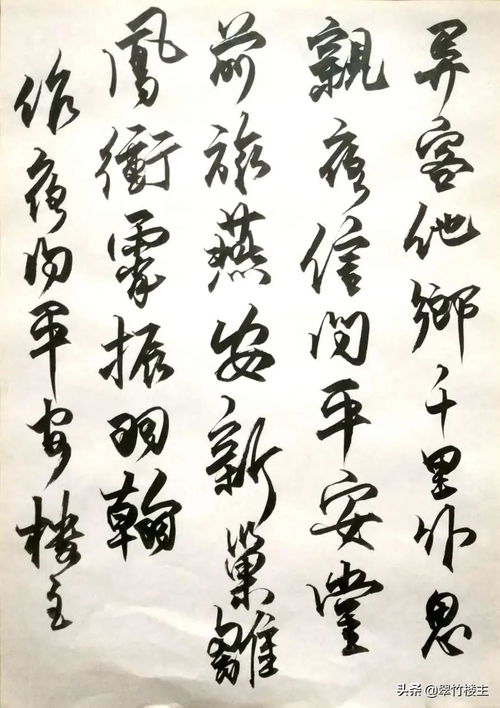 异客他鄉千里外思
親夜信问平安堂
前旅燕安新巢雛
鳳衝霄振羽翰
作夜问平安樓主
头条 @翠竹楼主